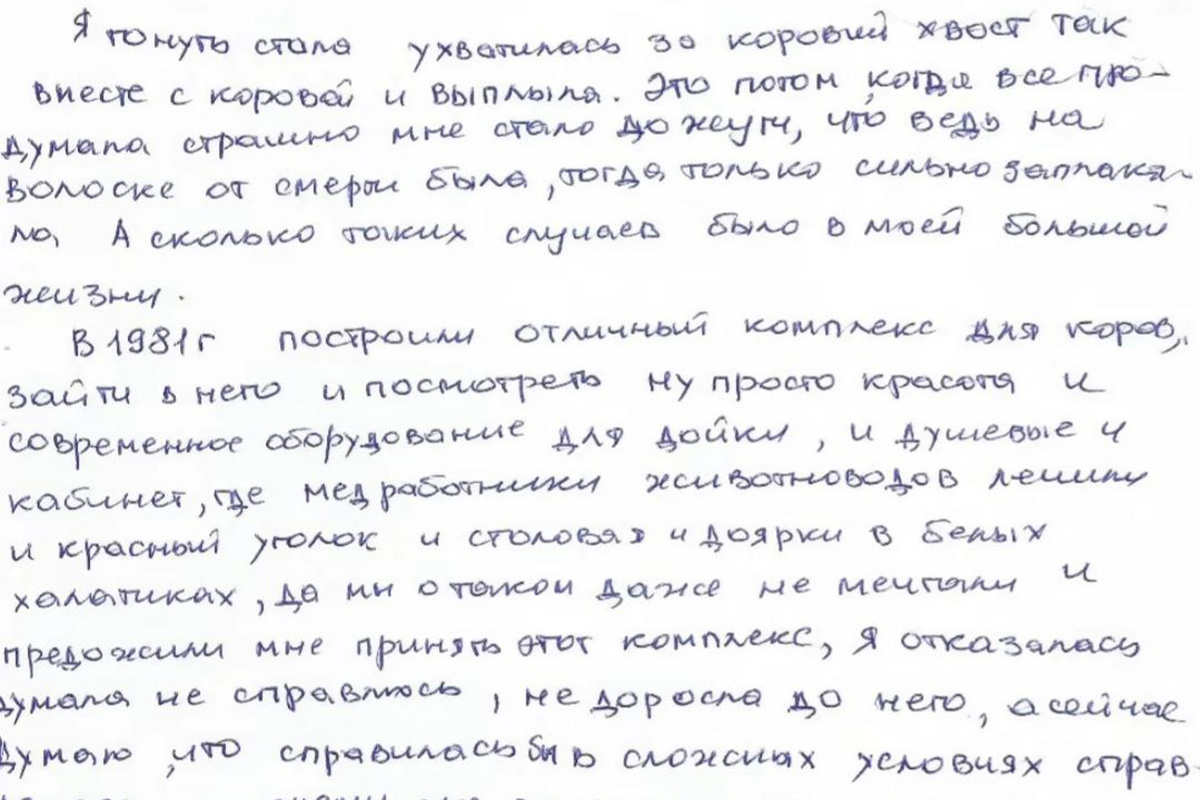 Я тонуть стала ухватилась за коровий хвост так
вместе с коровой и выплыла. Это потом, когда все про-
думала страшно мне стало до жути, что ведь на
волоске от смерти была, тогда только сильно заплака-
ла. А сколько таких случаев было в моей большой
жизни.
В 1981г построили отличный комплекс для коров,
зайти в него и посмотреть ну просто красота и
современное оборудование для дойки, и душевые и
кабинет, где медработники животноводов лечили
и красный уголок и столовая и доярки в белых
халатиках, да мы о таком даже не мечтали и
предожили мне принять этот комплекс, я отказалась
думала не справлюсь, не доросла до него, а сейчас
думаю, что справилась бы в сложных условиях справ-